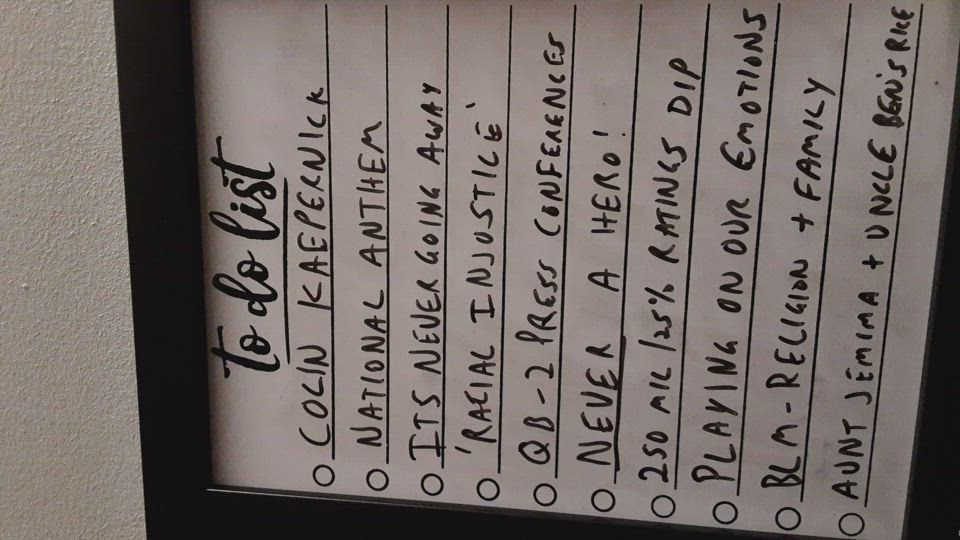 to do list
COLIN KAEPERNICK
NATIONAL ANTHEM
ITS NEVER GOING AWAY
'RACIAL INJUSTICE'
QB-2 PRESS CONFERENCES
NEVER A HERO!
250 MIL/25% RATINGS DIP
PLAYING ON OUR EMOTIONS
BLM-RELIGION + FAMILY
AUNT JEMIMA + UNCLE BEN'S RICE